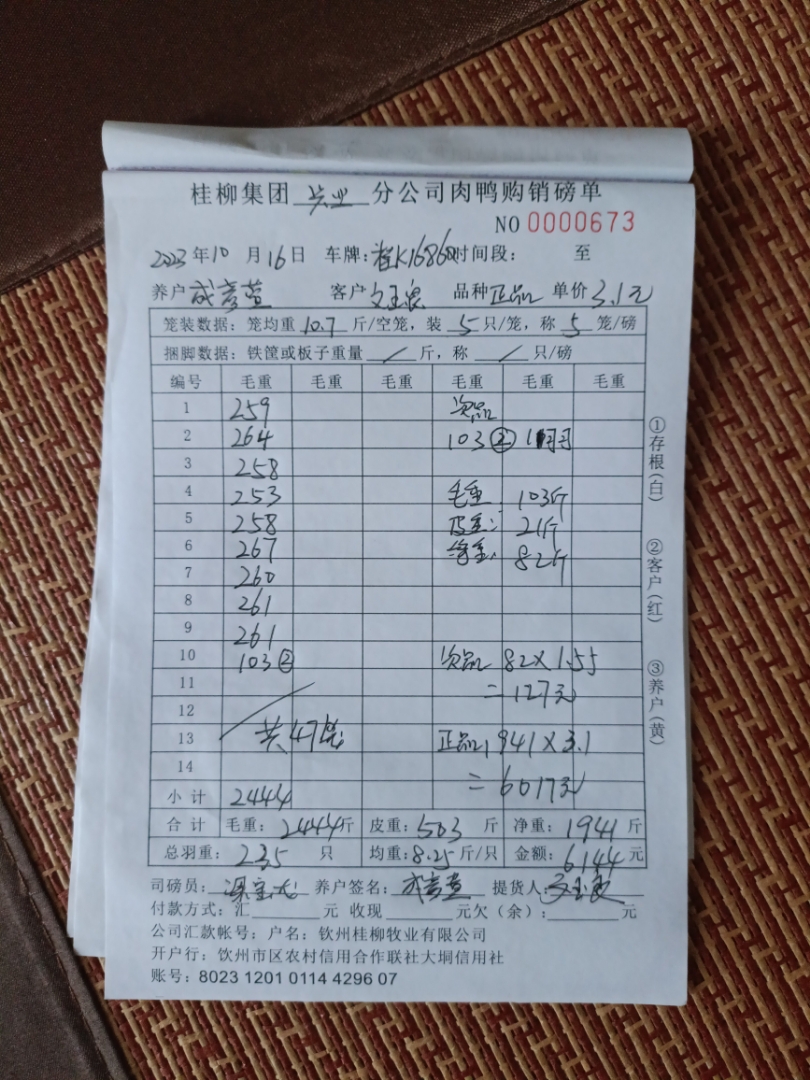 桂柳集团 兴业 分公司肉鸭购销磅单
NO 0000673
2023年10月16日 车牌:桂K16860 时间段: 至
养户 成彦萱 客户 文玉良 品种 正品 单价 3.1元
笼装数据:笼均重 10.7 斤/空笼,装 5 只/笼,称 5 笼/磅
捆脚数据:铁筐或板子重量 / 斤,称 / 只/磅
编号 毛重 毛重 毛重 毛重 毛重 毛重
1 259 次品
2 264 103②
3 258
4 253 毛重: 103斤
5 258 皮重: 21斤
6 267 净重: 82斤
7 260
8 261
9 261
10 103② 次品 82×1.55
11 =127元
12
13 共47笼 正品1941×3.1
14 =6017元
小计 2444
合计 毛重:2444斤 皮重:503斤 净重:1941斤
总羽重:235只 均重:8.25斤/只 金额:6144元
司磅员: 养户签名:成彦萱 提货人:文玉良
付款方式:汇 元 收现 元欠(余): 元
公司汇款帐号:户名:钦州桂柳牧业有限公司
开户行:钦州市区农村信用合作联社大垌信用社
账号:8023 1201 0114 4296 07
①存根(白)
②客户(红)
③养户(黄)